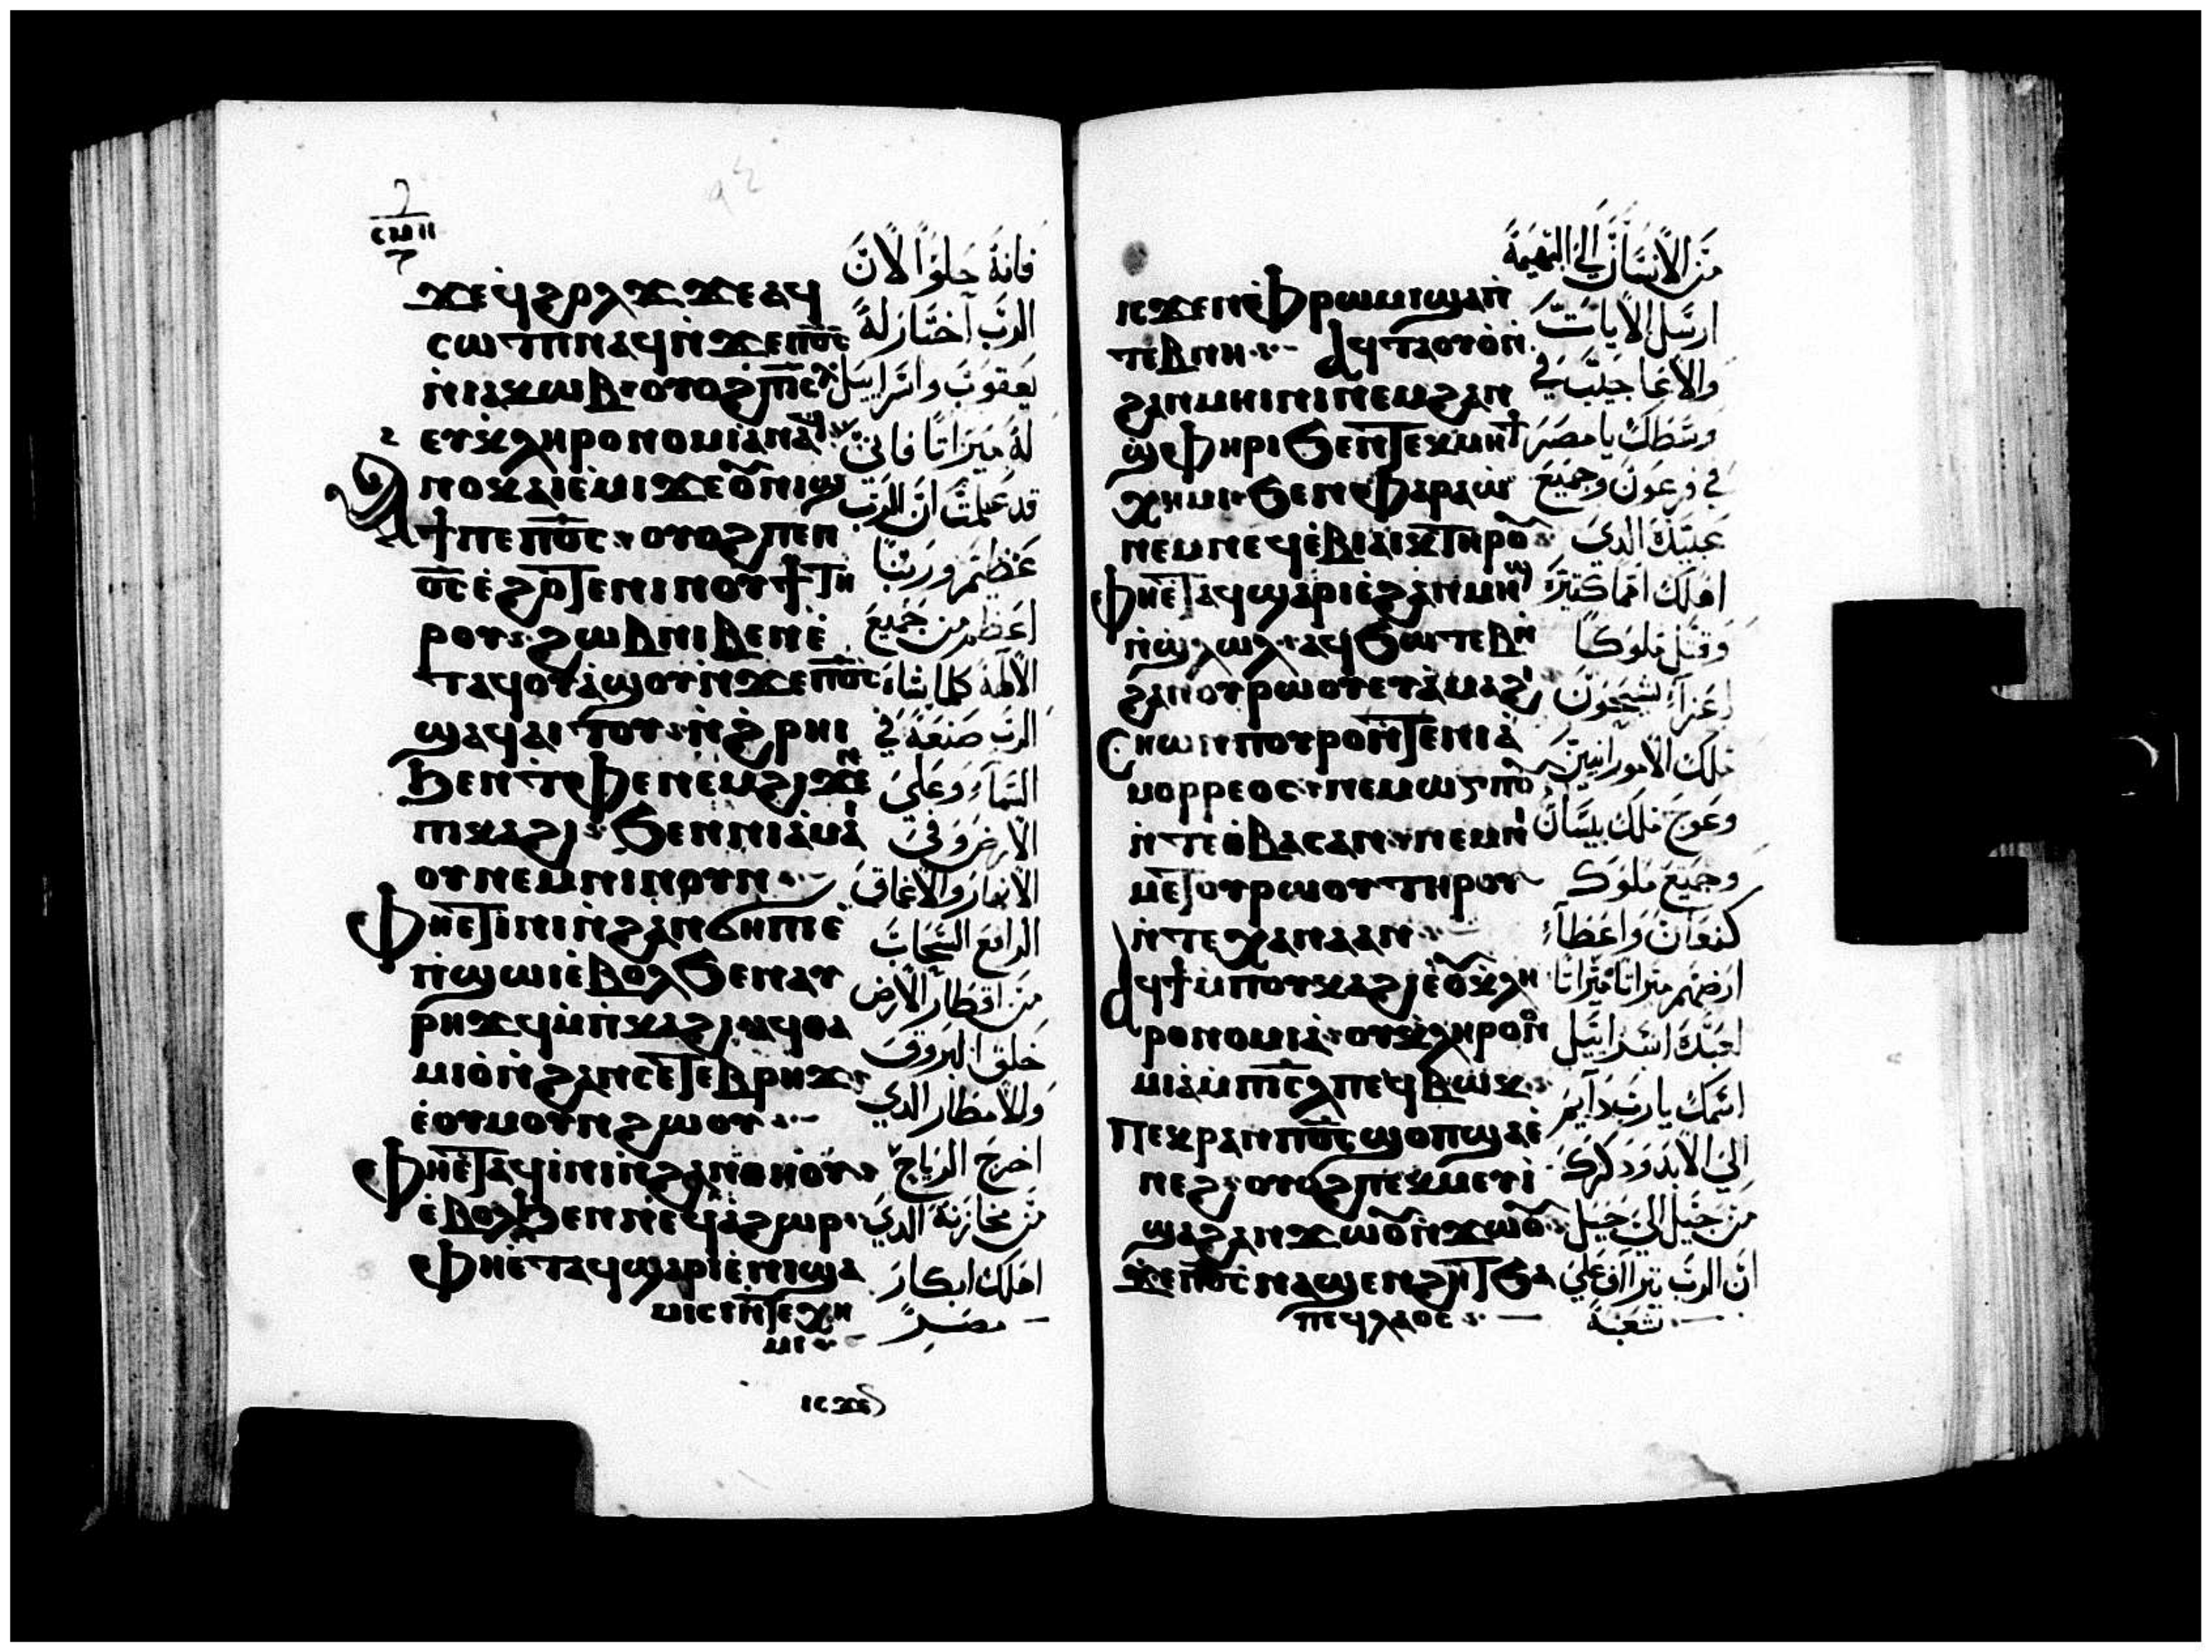 ϫⲉϥϩⲟⲗϫ ϫⲉⲁϥ
ⲥⲱⲧⲡ ⲛⲁϥ ⲛ̇ϫⲉⲡ⳪
ⲛ̇ⲓⲁⲕⲱⲃ ⲟⲩⲟϩ ⲡⲓⲥ̅ⲗ
ⲉⲩⲕⲗⲏⲣⲟⲛⲟⲙⲓⲁ ⲛⲁϥ
Ⲁⲛⲟⲕ ⲁⲓⲉ̀ⲙⲓ ϫⲉ ⲟⲩⲛⲓϣ
ϯ ⲡⲉ ⲡ⳪ ⲟⲩⲟϩ ⲡⲉⲛ
⳪ ⲉ̀ϩⲟⲧⲉ ⲛⲓⲛⲟⲩϯ ⲧⲏ
ⲣⲟⲩ ϩⲱⲃ ⲛⲓⲃⲉⲛ ⲉ̀
ⲧⲁϥⲟⲩⲁϣⲟⲩ ⲛ̇ϫⲉⲡ⳪
ϣⲁϥⲁⲓⲧⲟⲩ ⲛ̇ϩ̀ⲣⲏⲓ
ϧⲉⲛ ⲧⲫⲉ ⲛⲉⲙ ϩⲓϫⲉⲛ
ⲡⲕⲁϩⲓ ϧⲉⲛ ⲛⲓⲁ̀ⲙⲁⲓ
ⲟⲩ ⲛⲉⲙ ⲛⲓⲛⲟⲩⲛ
Ⲫⲏⲉⲧⲓⲛⲓ ⲛ̇ϩⲁⲛϭⲏⲡⲓ ⲉ̀
ⲡ̇ϣⲱⲓ ⲉ̀ⲃⲟⲗ ϧⲉⲛ ⲁⲩ
ⲣⲏϫϥ ⲙ̇ⲡ̇ⲕⲁϩⲓ ⲁϥⲑⲁ
ⲙⲓⲟ̇ ⲛ̇ϩⲁⲛⲥⲉⲧⲉⲃⲣⲏϫ
ⲉ̇ⲟⲩⲙⲟⲩⲛϩⲱⲟⲩ
Ⲫⲏⲉ̀ⲧⲁϥⲓ̇ⲛⲓ ⲛ̇ϩⲁⲛⲑⲏⲟⲩ
ⲉ̇ⲃⲟⲗ ϧⲉⲛ ⲛⲉϥⲁ̇ϩⲱⲣ
Ⲫⲏⲉ̇ⲧⲁϥϣⲁⲣⲓ ⲉ̇ⲛⲓϣⲁ
ⲙⲓⲥⲓ ⲛ̇ⲧⲉⲭⲏ
ⲙⲓ
ⲓⲥϫⲉ
فانه حلوًا لان
الرب اختار له
يعقوب واسراييل
له ميراثا فاني
قد علمت ان الرب
عظيم وربنا
اعظم من جميع
الالهة كلما شاء
الرب صنعه في
السماء وعلي
الارض وفي
الانهار والاعماق
الرافع السحاب
من اقطار الارض
خلق البروق
وللامطار الذي
اخرج الرياح
من مخازنه الذي
اهلك ابكار
مصر
ⲓⲥϫⲉⲛ ⲫ̇ⲣⲱⲙⲓ ϣⲁⲡ̇
ⲧⲉⲃⲛⲏ Ⲁϥⲧⲁⲟⲩⲟ̇ ⲛ̇
ϩⲁⲛⲙⲏⲓⲛⲓ ⲛⲉⲙ ϩⲁⲛ
ϣ̇ⲫⲏⲣⲓ ϧⲉⲛ ⲧⲉⲕⲙⲏϯ
ⲭⲏⲙⲓ ϧⲉⲛ ⲫⲁⲣⲁⲱ̇
ⲛⲉⲙ ⲛⲉϥⲉ̇ⲃⲓⲁⲓⲕ ⲧⲏⲣⲟⲩ
Ⲫⲏⲉ̇ⲧⲁϥϣⲁⲣⲓ ⲉ̇ϩⲁⲛⲙⲏϣ
ⲛ̇ϣⲗⲱⲗ ⲁϥϧⲱⲧⲉⲃ ⲛ̇
ϩⲁⲛⲟⲩⲣⲱⲟⲩ ⲉⲩⲁ̇ⲙⲁϩⲓ
Ⲥⲏⲱⲛ ⲡⲟⲩⲣⲟ ⲛ̇ⲧⲉⲛⲓⲁ̇
ⲙⲟⲣⲣⲉⲟⲥ ⲛⲉⲙ ⲱⲅ ⲡⲟⲩ
ⲛ̇ⲧⲉ ⲑ̇ⲃⲁⲥⲁⲛ ⲛⲉⲙ ⲛⲓ
ⲙⲉⲧⲟⲩⲣⲱⲟⲩ ⲧⲏⲣⲟⲩ
ⲛ̇ⲧⲉ ⲭⲁⲛⲁⲁⲛ
Ⲁϥϯ ⲙ̇ⲡⲟⲩⲕⲁϩⲓ ⲉ̇ⲟⲩⲕⲗⲏ
ⲣⲟⲛⲟⲙⲓⲁ ⲟⲩⲕⲗⲏⲣⲟⲛⲟ
ⲙⲓⲁ ⲙ̇ⲡⲓⲥ̅ⲗ ⲡⲉϥⲃⲱⲕ
Ⲡⲉⲕⲣⲁⲛ ⲡ⳪ ϣⲟⲡ ϣⲁⲉ̇
ⲛⲉϩ ⲟⲩⲟϩ ⲡⲉⲕⲙⲉⲩⲓ̇
ϣⲁϩⲁⲛϫⲱⲟⲩ ⲛ̇ϫⲱⲟⲩ
ϫⲉ ⲡ⳪ ⲛⲁϣⲉⲛϩⲏⲧ ϧⲁ
ⲡⲉϥⲗⲁⲟⲥ
من الانسان الي البهيمة
ارسل الايات
والاعاجيب في
وسطك يا مصر
في فرعون وجميع
عبيدك الذي
اهلك امما كثيرة
وقتل ملوكا
اعزاء شيحون
ملك الامورانيين
وعوج ملك بيسان
وجميع ملوك
كنعان واعطاء
ارضهم ميراثا ميراثا
لعبدك اسراييل
اسمك يا رب دايم
الي الابد وذكرك
من جيل الي جيل
ان الرب يتراآف علي
شعبه